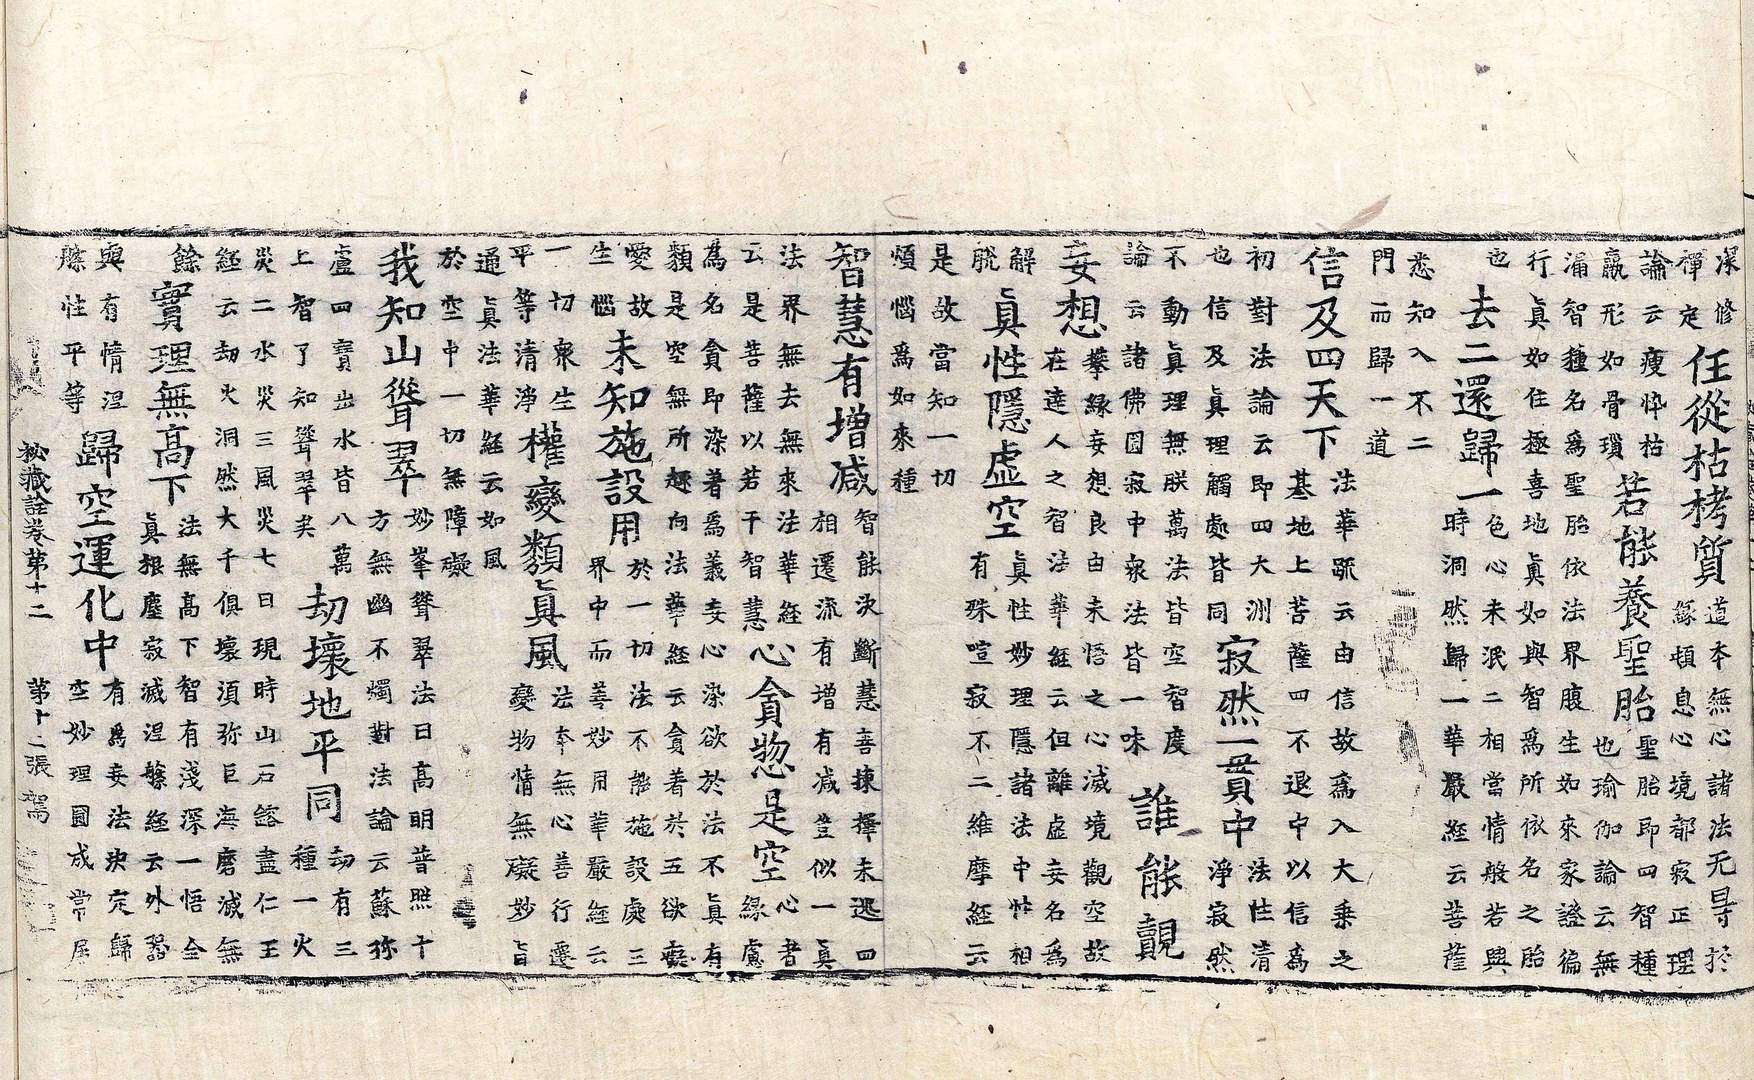 深修
禪定
任從枯栲質
道本無心諸法无㝵於
緣頓息心境都寂正理
論云瘦悴枯
羸形如骨瑣
若能養聖胎
聖胎即四智種
也瑜伽論云無
漏智種名爲聖胎依法界腹生如來家證徧
行眞如住極喜地眞如與智爲所依名之胎
也
去二還歸一
色心未泯二相當情般若興
時洞然歸一華嚴経云菩薩
悉知入不二
門而歸一道
信及四天下
法華䟽云由信故爲入大乗之
基地上菩薩四不退中以信爲
初對法論云即四大洲
也信及眞理觸處皆同
寂然一貫中
法性清
淨寂然
不動眞理無朕萬法皆空智度
論云諸佛圓寂中衆法皆一味
誰能覩
妄想
攀緣妄想良由未悟之心滅境觀空故
在達人之智法華経云但離虛妄名爲
解
脫
眞性隱虚空
眞性妙理隱諸法中性相
有殊喧寂不二維摩経云
是故當知一切
煩惱爲如來種
智慧有增減
智能决斷慧喜揀擇未逃四
相遷流有增有減豈似一眞
法界無去無來法華経
云是菩薩以若干智慧
心貪惣是空
心者
緣慮
為名貪即染著爲義妄心染欲於法不眞有
類是空無所趣向法華経云貪著於五欲癡
愛故
生惱
未知施設用
於一切法不能施設處三
界中而善妙用華嚴経云
一切衆生
平等清淨
權變類眞風
法本無心善行遷
變物情無礙妙旨
通眞法華経云如風
於空中一切無障礙
我知山聳翠
妙峯聳翠法日高明普照十
方無幽不燭對法論云蘇弥
盧四寶出水皆八萬
上智了知聳翠矣
劫壞地平同
劫有三
種一火
災二水災三風災七日現時山石鎔盡仁王
経云劫火洞然大千俱壞須弥巨海磨滅無
餘
實理無高下
法無高下智有淺深一悟全
眞根塵寂滅涅槃経云外器
與有情涅
槃性平等
歸空運化中
有爲妄法决定歸
空妙理圓成常居
秘藏詮卷第十二 第十二張 駕